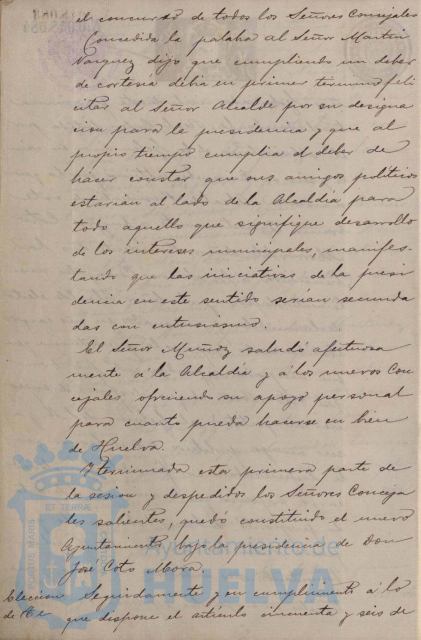 el concurso de todos los Señores Concejales
Concedida la palabra al Señor Martin
Vazquez dijo que cumpliendo un deber
de cortesía debia en primer termino feli
citar al Señor Alcalde por su designa
cion para la presidencia y que al
propio tiempo cumplia el deber de
hacer constar que sus amigos politicos
estarian al lado de la Alcaldia para
todo aquello que signifique desarrollo
de los intereses municipales, manifes-
tando que las iniciativas de la presi
dencia en este sentido serian secunda
das con entusiasmo.
El Señor Muñoz saludó afectuosa
mente á la Alcaldia y á los nuevos Con
cejales ofreciendo su apoyo personal
para cuanto pueda hacerse en bien
de Huelva.
Y terminada esta primera parte de
la sesion y despedidos los Señores Conceja
les salientes, quedó constituido el nuevo
Ayuntamiento bajo la presidencia de Don
José Coto Mora.
Eleccion Seguidamente y en cumplimiento á lo
de que dispone el artículo cincuenta y seis de
Ayuntamiento de
HUELVA